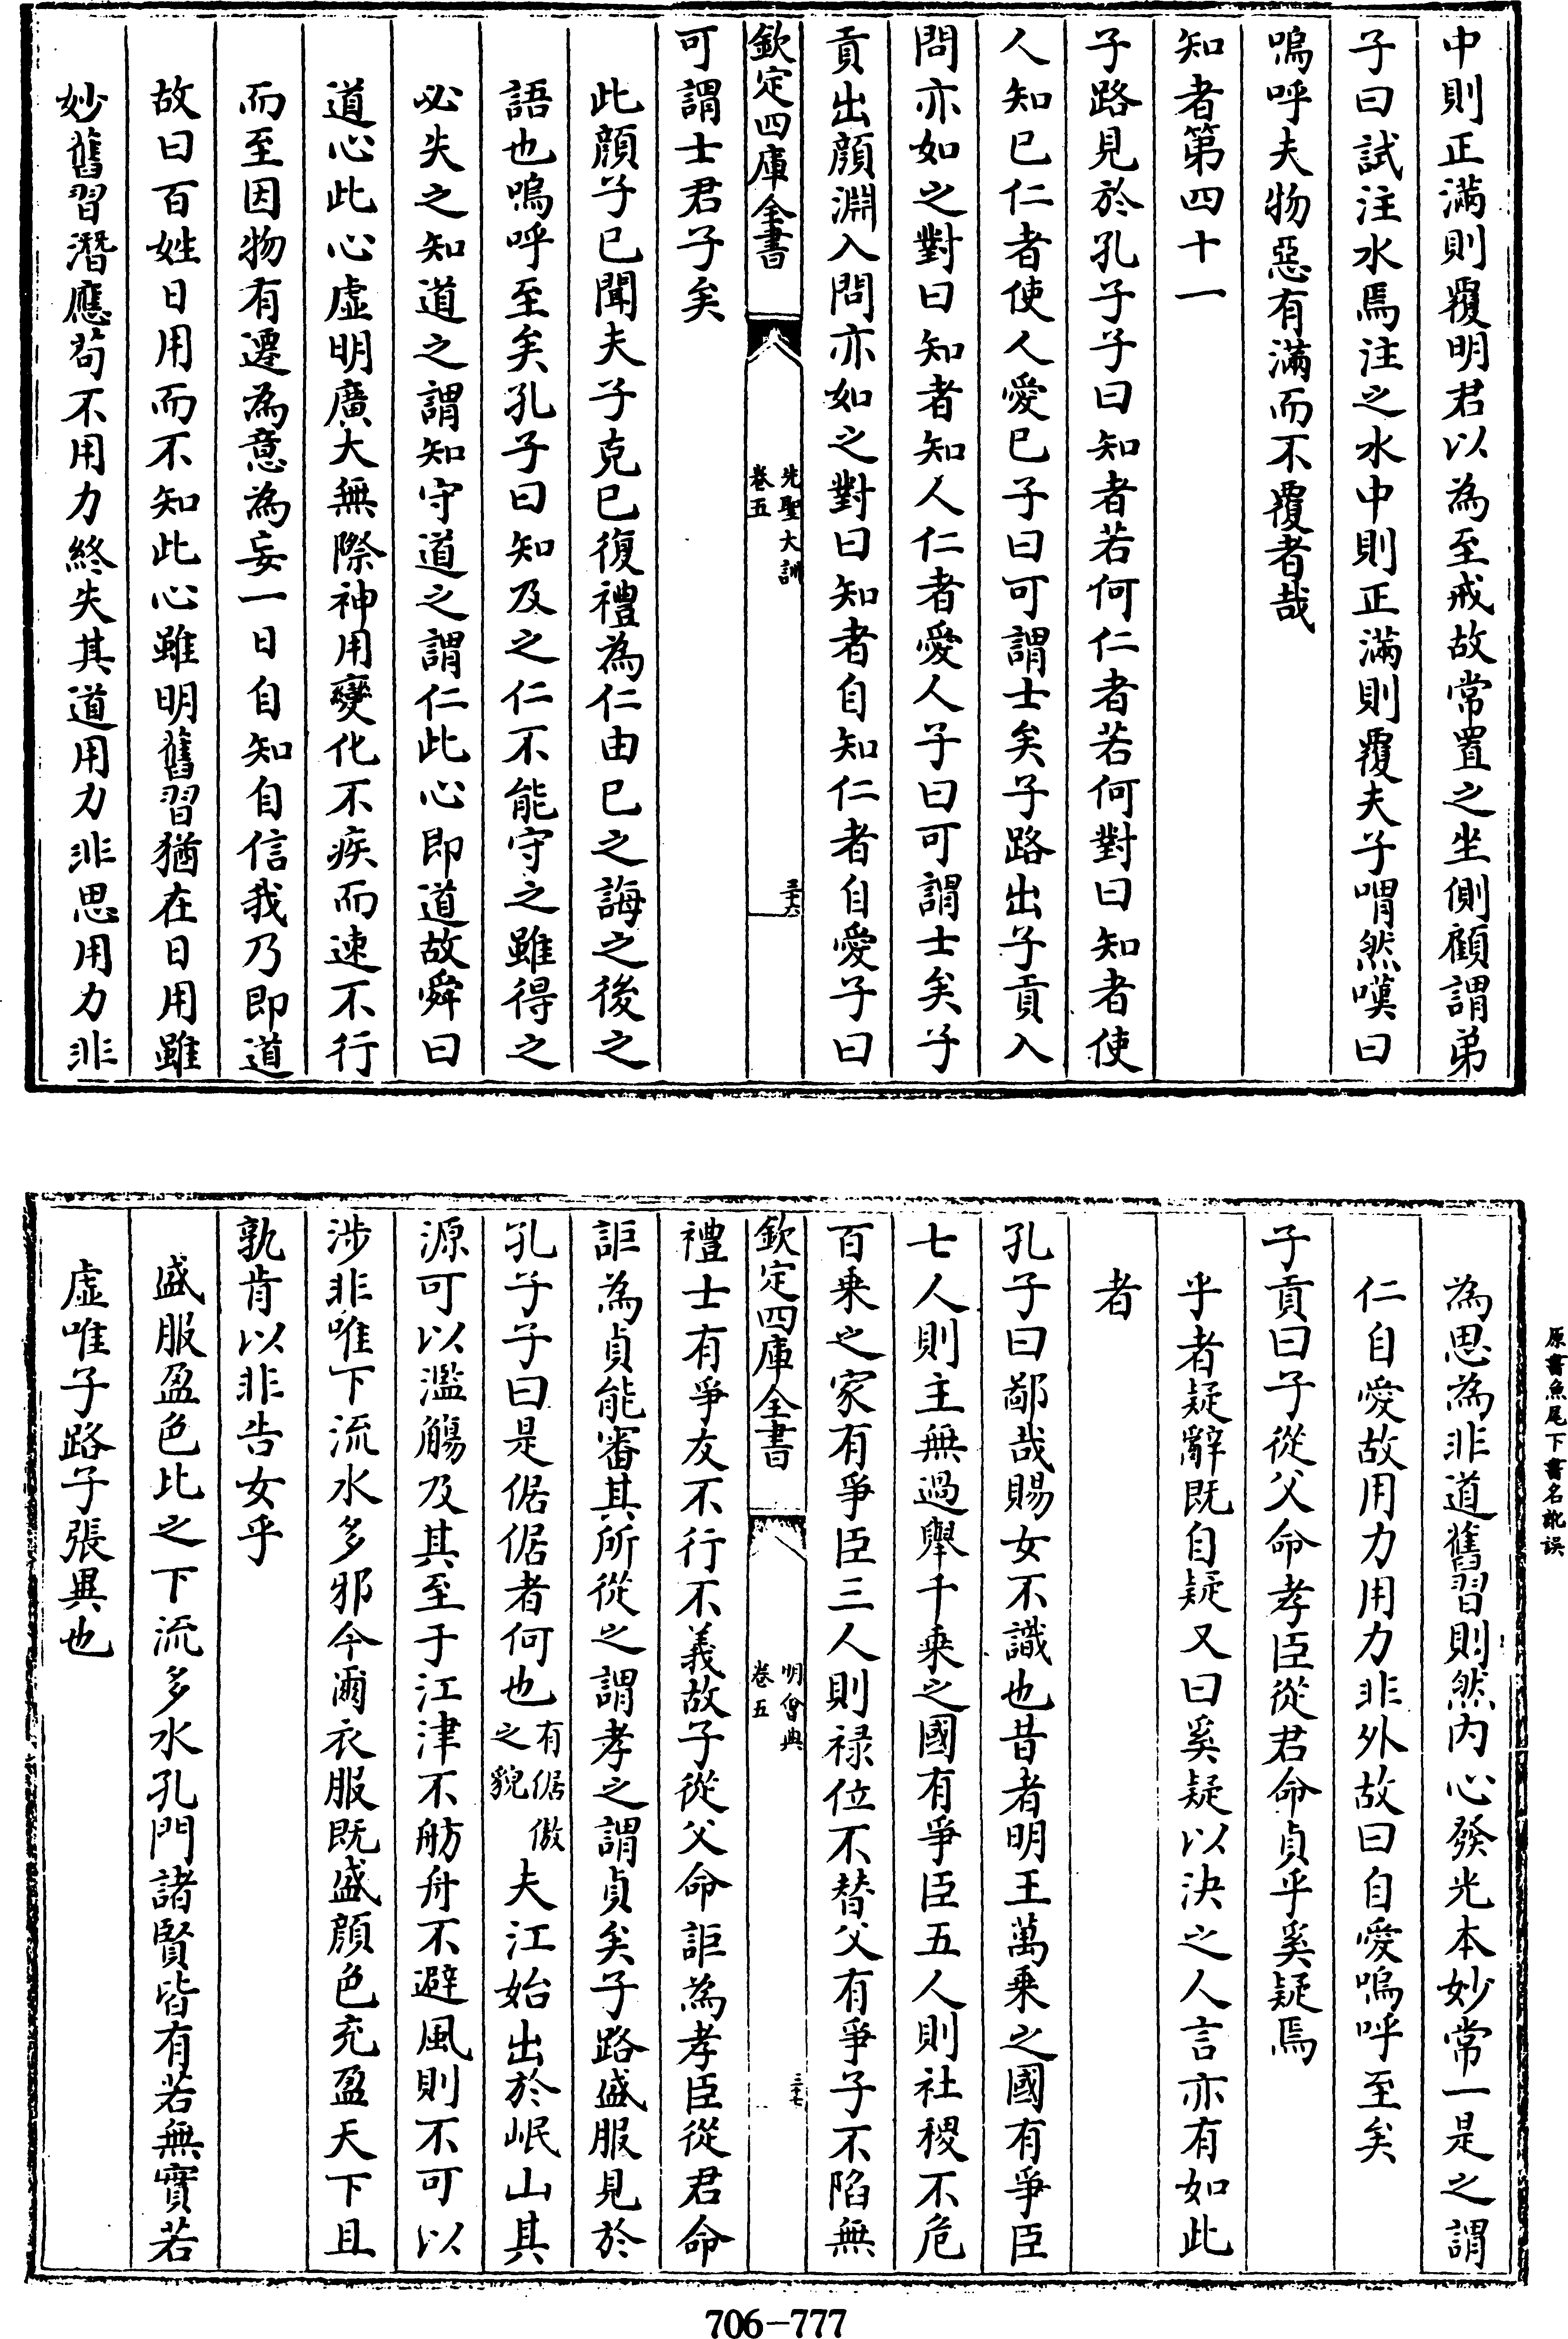 中則正滿則覆明君以為至戒故常置之坐側顧謂弟
子曰試注水焉注之水中則正滿則覆夫子喟然嘆曰
嗚呼夫物惡有滿而不覆者哉
知者第四十一
子路見於孔子子曰知者若何仁者若何對曰知者使
人知已仁者使人愛已子曰可謂士矣子路出子貢入
問亦如之對曰知者知人仁者愛人子曰可謂士矣子
貢出顔淵入問亦如之對曰知者自知仁者自愛子曰
欽定四庫全書
先聖大訓
卷五
三十六
可謂士君子矣
此顔子已聞夫子克已復禮為仁由已之誨之後之
語也嗚呼至矣孔子曰知及之仁不能守之雖得之
必失之知道之謂知守道之謂仁此心即道故舜曰
道心此心虛明廣大無際神用變化不疾而速不行
而至因物有遷為意為妄一日自知自信我乃即道
故曰百姓日用而不知此心雖明舊習猶在日用雖
妙舊習潛應苟不用力終失其道用力非思用力非
為思為非道舊習則然内心發光本妙常一是之謂
仁自愛故用力用力非外故曰自愛嗚呼至矣
子貢曰子從父命孝臣從君命貞乎奚疑焉
乎者疑辭既自疑又曰奚疑以決之人言亦有如此
者
孔子曰鄙哉賜女不識也昔者明王萬乘之國有爭臣
七人則主無過舉千乘之國有爭臣五人則社稷不危
百乘之家有爭臣三人則禄位不替父有爭子不陷無
欽定四庫全書
明會典
卷五
三十七
禮士有爭友不行不義故子從父命詎為孝臣從君命
詎為貞能審其所從之謂孝之謂貞矣子路盛服見於
孔子子曰是倨倨者何也有倨傲之貌夫江始出於岷山其
源可以濫觴及其至于江津不舫舟不避風則不可以
涉非唯下流水多邪今爾衣服既盛顔色充盈天下且
孰肯以非告女乎
盛服盈色比之下流多水孔門諸賢皆有若無實若
虛唯子路子張異也
原書魚尾下書名訛誤
706-777